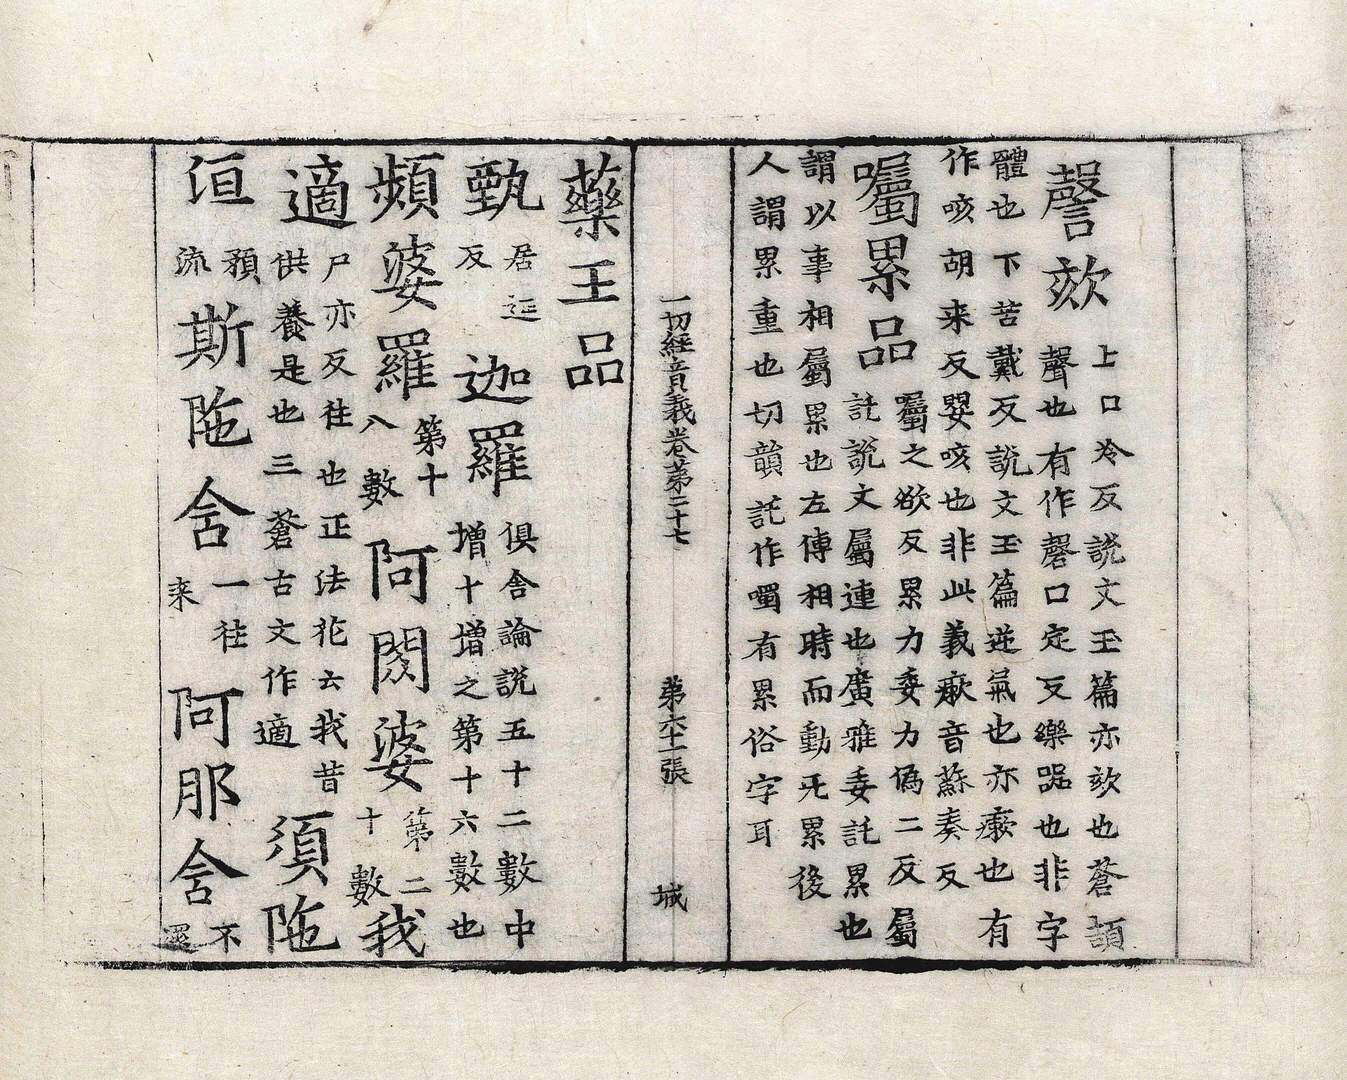 謦欬上口冷反說文玉篇亦欬也蒼頡
聲也有作磬口定反樂器也非字
體也下苦戴反說文玉篇逆氣也亦瘶也有
作咳胡来反嬰咳也非此義瘶音蘇奏反
囑累品囑之欲反累力委力偽二反屬
託說文屬連也廣雅委託累也
謂以事相屬累也左傳相時而動旡累後
人謂累重也切韻託作噣有累俗字耳
一切經音義卷第二十七 第六十一張 城
藥王品
甄居延反迦羅俱舍論說五十二數中
增十增之第十六數也
頻婆羅第十八數阿閦婆第二十數我
適尸亦反往也正法花云我昔
供養是也三蒼古文作適須陁
洹預流斯陁舍一往来阿那舍不還